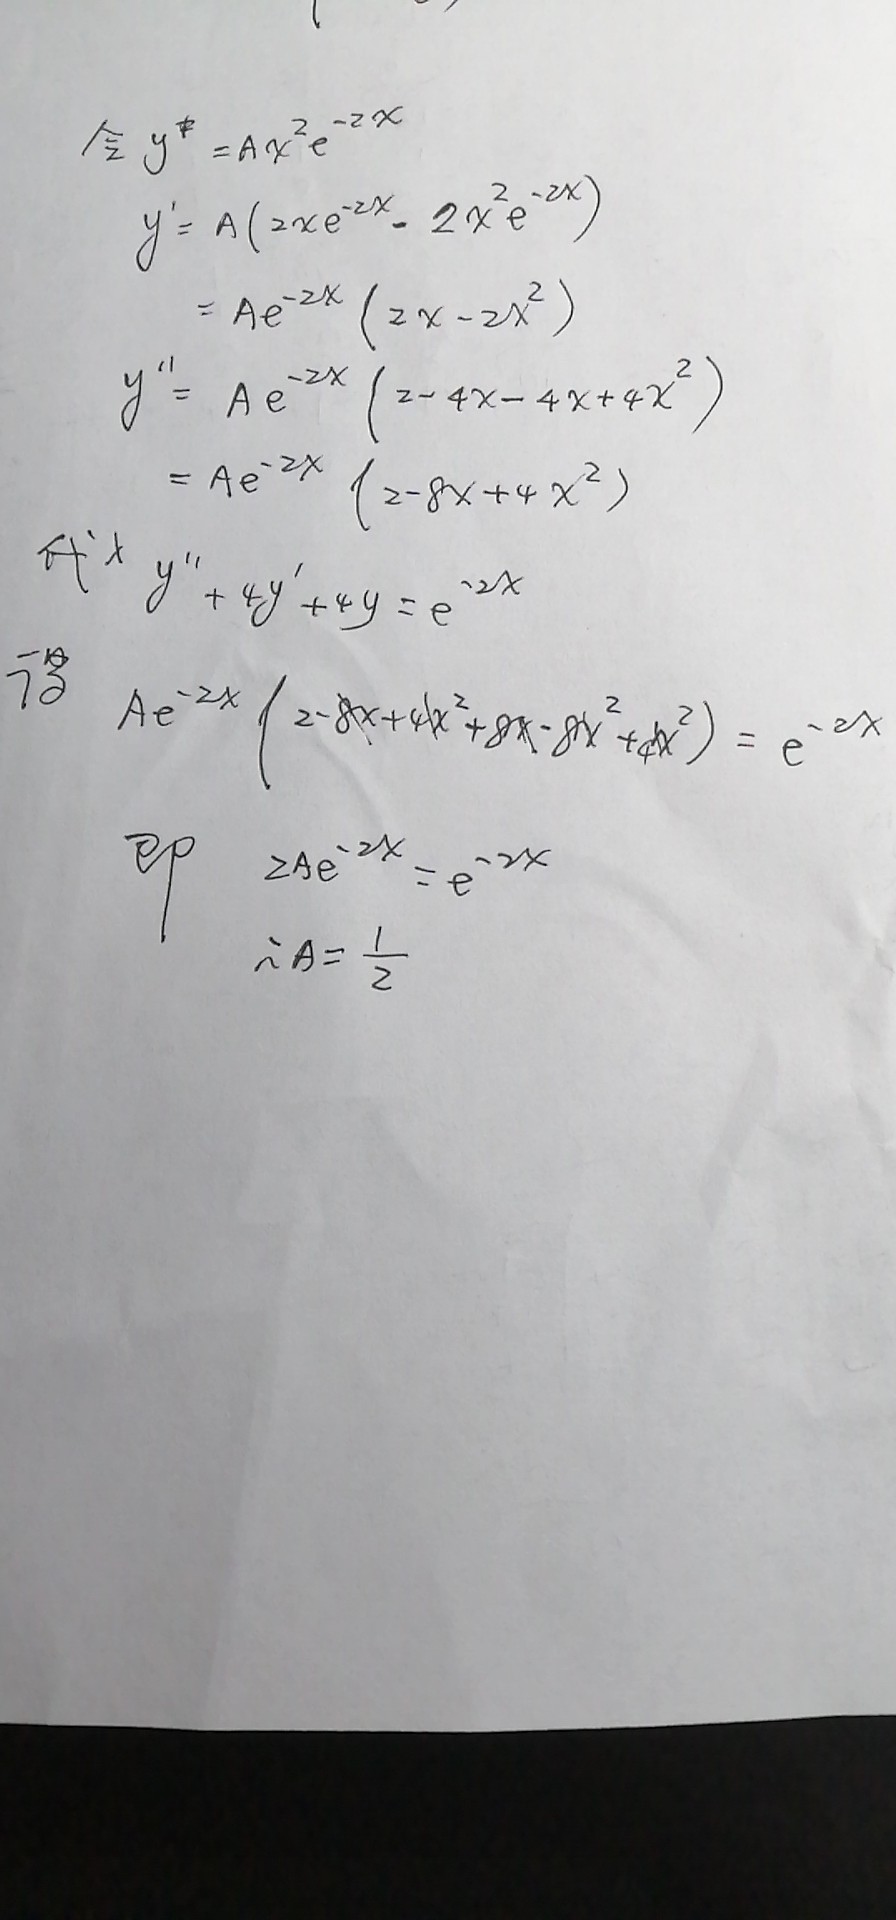 令 y* = Ax²e⁻²ˣ
y' = A(2xe⁻²ˣ - 2x²e⁻²ˣ)
= Ae⁻²ˣ (2x - 2x²)
y'' = Ae⁻²ˣ (2 - 4x - 4x + 4x²)
= Ae⁻²ˣ (2 - 8x + 4x²)
代入 y'' + 4y' + 4y = e⁻²ˣ
得 Ae⁻²ˣ (2 - 8x + 4x² + 8x - 8x² + 4x²) = e⁻²ˣ
即 2Ae⁻²ˣ = e⁻²ˣ
∴ A = 1/2